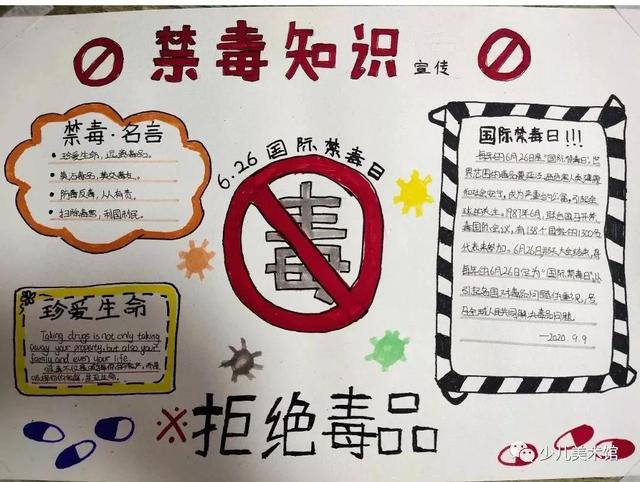 禁毒知识 宣传
禁毒·名言
珍爱生命，远离毒品。
莫沾毒品，莫交毒友。
防毒反毒，人人有责。
扫除毒害，利国利民。
6.26 国际禁毒日
毒
国际禁毒日!!!
每年的6月26日是“国际禁毒日”，世
界范围的毒品蔓延
和社会安宁，成为严重的公害，引起全
球的关注。1987年6月，联合国召开禁
毒国际会议，有138个国家的3000名
代表来参加。6月26日那天大会结束，将
每年的6月26日定为“国际禁毒日”，以
引起各国对毒品问题的重视，号
召全球人民共同解决毒品问题。
—2020.9.9
珍爱生命
Taking drugs is not only taking
away your property, but also your
family and even your life.
吸毒不仅是
※拒绝毒品
少儿美术馆